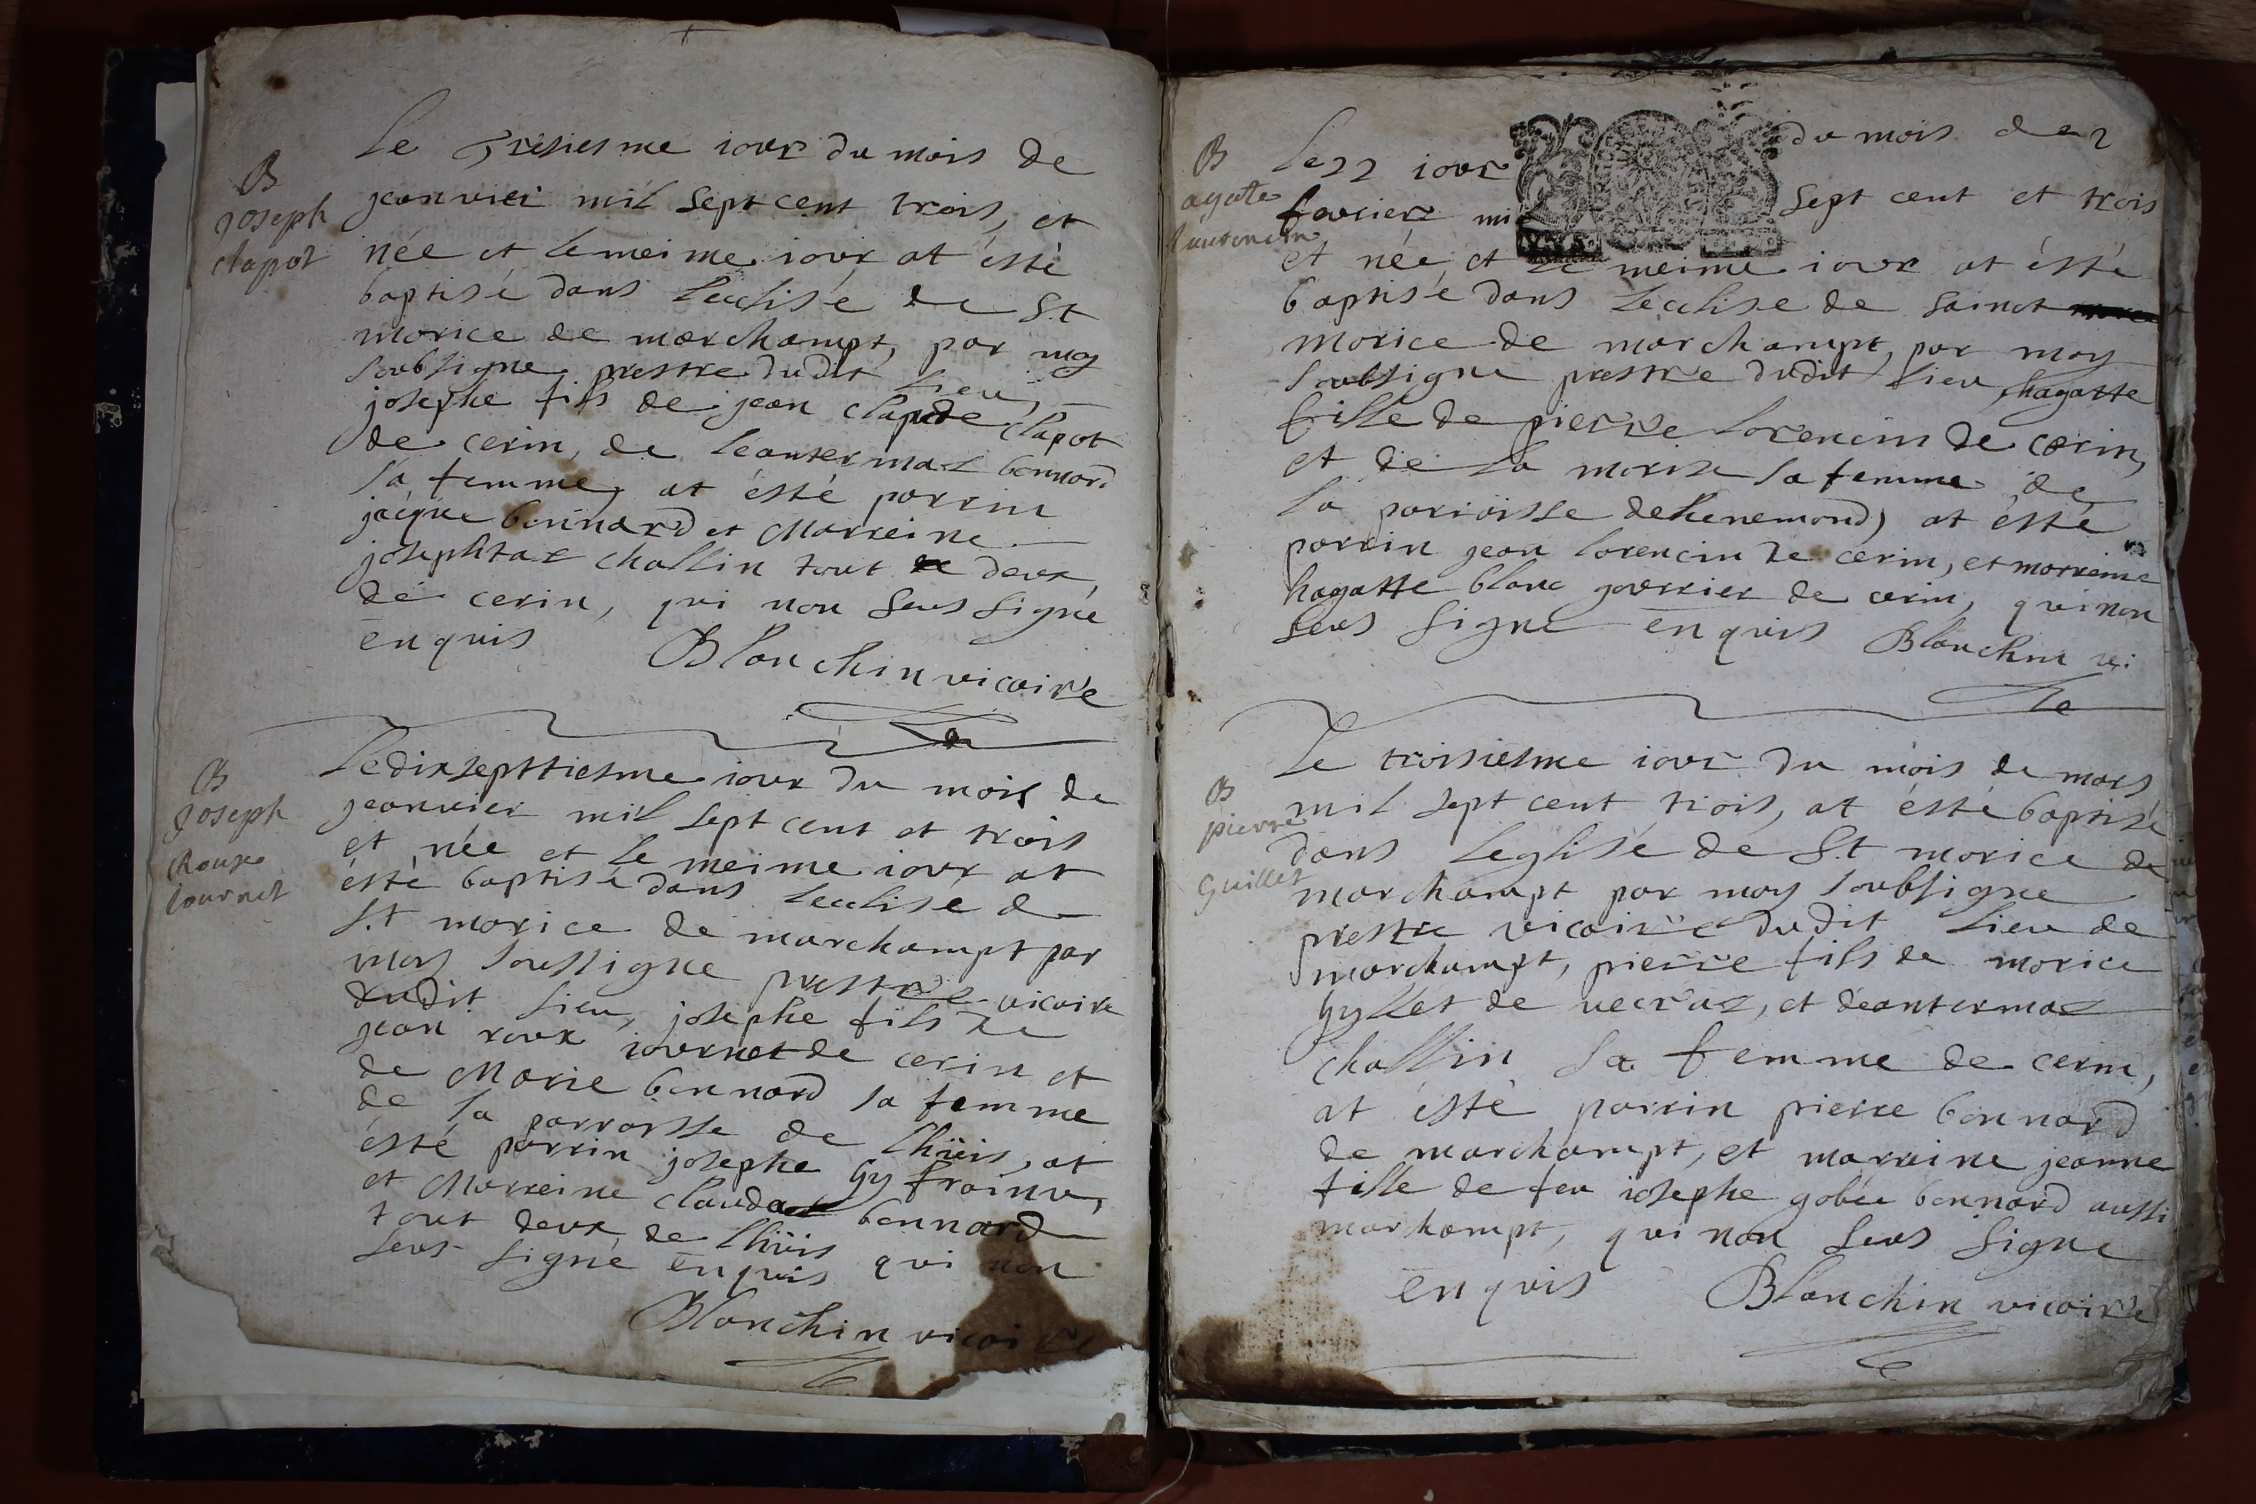 B
joseph
clapot
Le Tresiesme iour du mois de
jeanvier mil sept cent trois, et
née et le meime iour at ésté
baptisé dans leclise de St
morice de marchampt, par moy
soubsigne prestre dudit lieu,
josephe fils de jean claude clapot
de cerin, de leantermaz bonnard
sa femme, at ésté parrin
jacque bonnard et Marreine
josephtaz challin tout de deux
de cerin, qui non seus signé
enquis
Blanchin vicaire
B
Joseph
Roux
tournet
Le dixsepttiesme iour du mois de
jeanvier mil sept cent et trois
et née et le meime iour at
ésté baptisé dans leclise de
St morice de marchampt par
moy soussigne prestre vicaire
dudit lieu, josephe fils de
jean roux iournet de cerin et
de Marie bonnard sa femme
de la parroisse de lhüis, at
ésté parrin josephe Gy frainu,
et Marreine claudaz bonnard
tout deux de lhüis qui non
seus signé enquis
Blanchin vicaire
B
agatte
laurencin
Le 22 iour du mois de
fevrier mil sept cent et trois
et née, et le meime iour at ésté
baptisé dans leclise de sainct
morice de marchampt, par moy
soubsigne prestre dudit lieu hagatte
fille de pierre lorencin de cerin,
et de la morise sa femme de
la parroisse dehenemond, at ésté
parrin jean lorencin de cerin, et marreine
hagatte blanc gouerrier de cerin, qui non
seus signe enquis Blanchin vi
B
pierre
Guillet
Le troisiesme iour du mois de mars
mil sept cent trois, at ésté baptisé
dans leglise de St morice de
marchampt par moy soubsigne
prestre vicaire dudit lieu de
marchampt, pierre fils de morice
Gyllet de vecraz, et deantermaz
challin sa femme de cerin,
at ésté parrin pierre bonnard
de marchampt, et marreine jeanne
fille de feu iosephe gobée bonnard aussi
markampt, qui non seus signe
enquis Blanchin vicaire